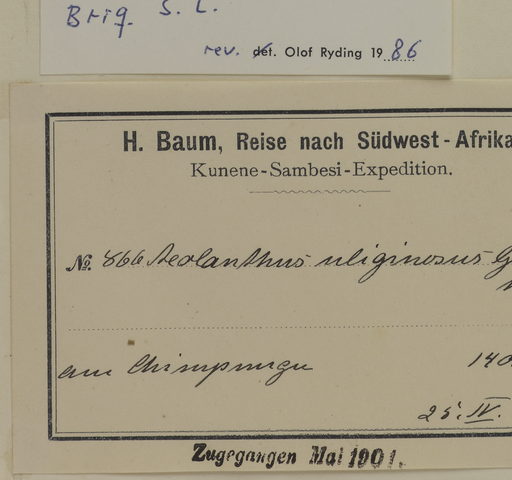 Briq. s. l.
rev. det. Olof Ryding 1986
H. Baum, Reise nach Südwest-Afrika
Kunene-Sambesi-Expedition.
No. 866 Aeolanthus uliginosus G
am Chimpunga 140
25. IV.
Zugegangen Mai 1901.